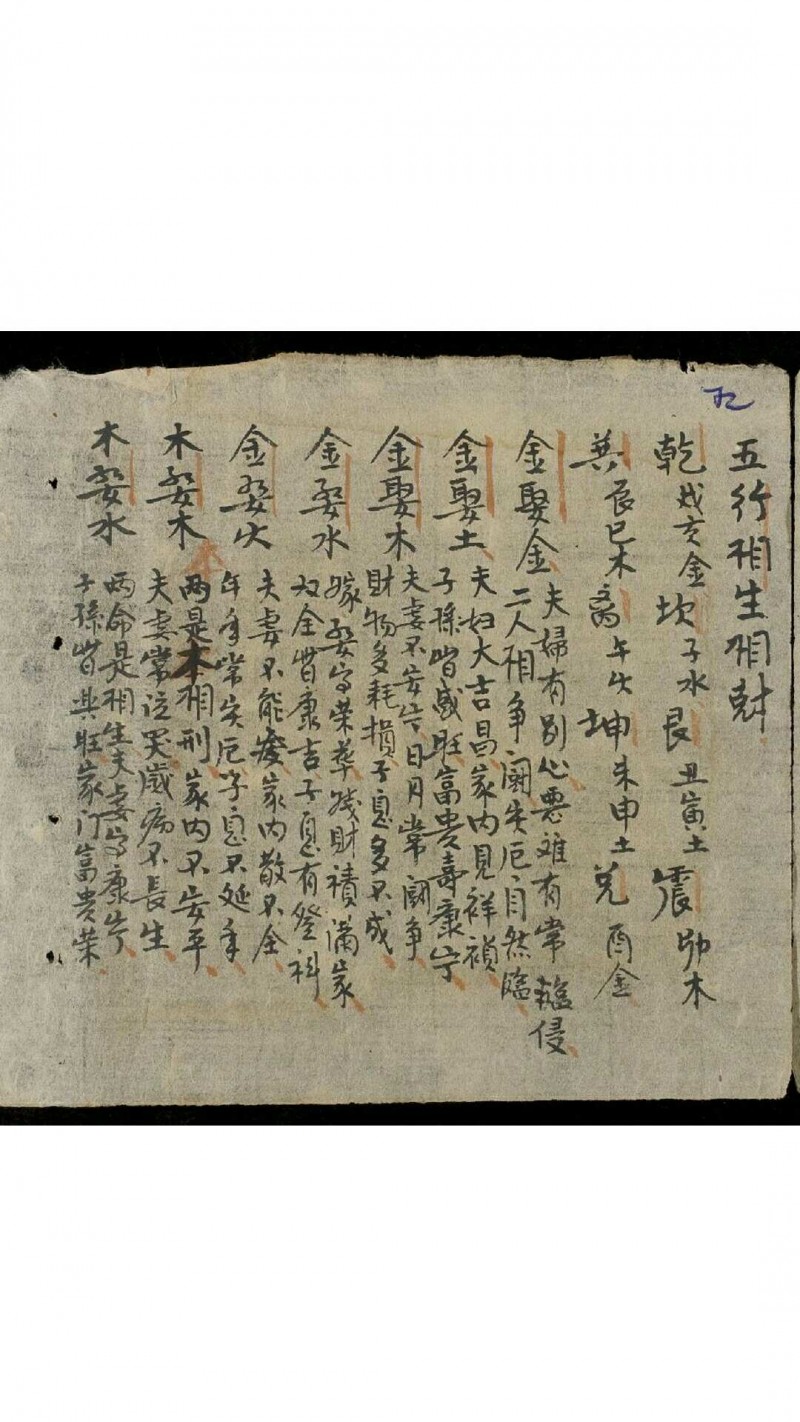 72
五行相生相尅
乾戌亥金 坎子水 艮丑寅土 震卯木
巽辰巳木 离午火 坤未申土 兑酉金
金娶金 夫婦有别心悪难有常𨋎侵
二人相争闹失厄自然臨
金娶土 夫妇大吉昌家内見祥禎
子孫皆盛旺富贵壽康宁
金娶木 夫妻不安宁日月常闹争
財物多耗損子息多不成
金娶水 嫁娶宁荣華残財積满家
双全皆康吉子息有登科
金娶火 夫妻不能 家内散不全
年年常失厄子息不延年
木娶木 两是木相刑家内不安平
夫妻常泣哭 病不長生
木娶水 两命是相生夫妻宁康宁
子孫皆興旺家门富贵荣